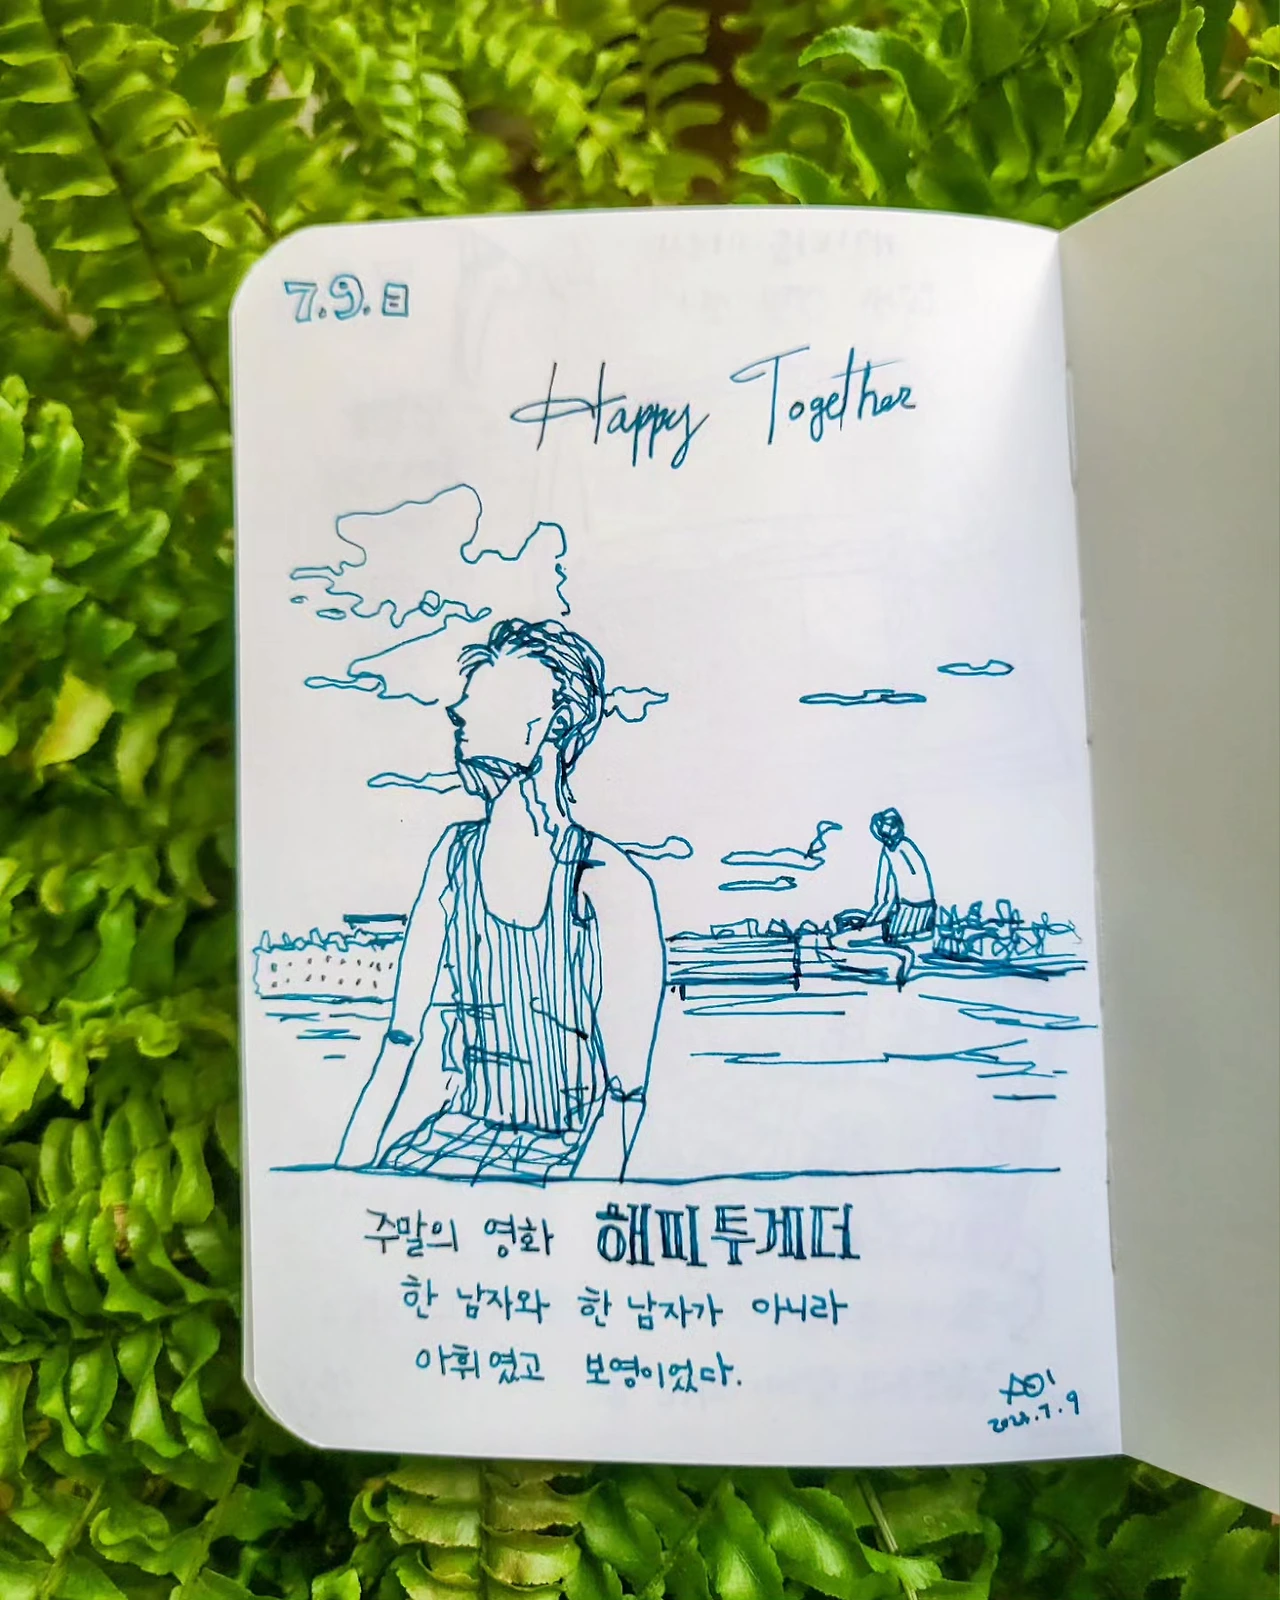 7.9.日
Happy Together
주말의 영화 해피투게더
한 남자와 한 남자가 아니라
아휘였고 보영이었다.